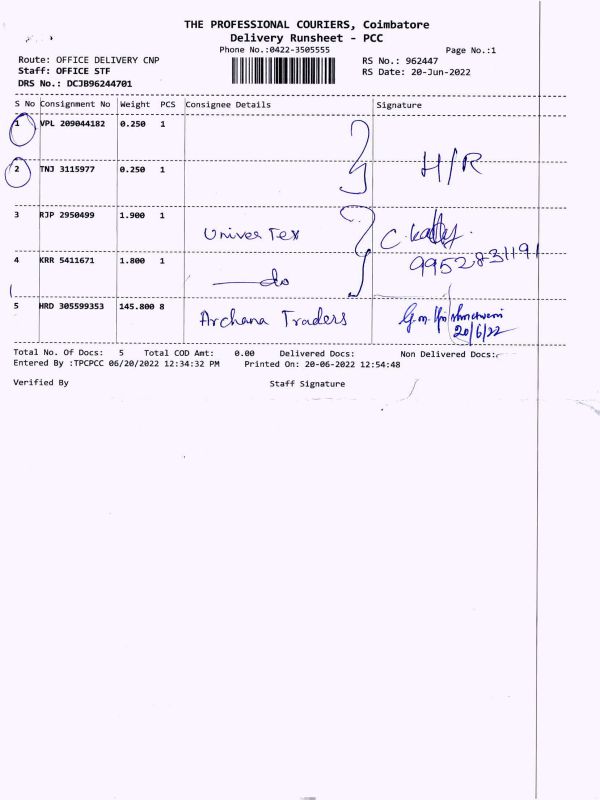 THE PROFESSIONAL COURIERS, Coimbatore
Delivery Runsheet - PCC
Phone No.:0422-3505555
Page No.:1
Route: OFFICE DELIVERY CNP
RS No.: 962447
Staff: OFFICE STF
RS Date: 20-Jun-2022
DRS No.: DCJB96244701
S No Consignment No Weight PCS Consignee Details Signature
1 VPL 209044182 0.250 1
2 TNJ 3115977 0.250 1 H/R
3 RJP 2950499 1.900 1 Univer Tex C.
4 KRR 5411671 1.800 1 do 9952831191
5 HRD 305599353 145.800 8 Archana Traders G.m.
20/6/22
Total No. Of Docs: 5 Total COD Amt: 0.00 Delivered Docs: Non Delivered Docs:
Entered By :TPCPCC 06/20/2022 12:34:32 PM Printed On: 20-06-2022 12:54:48
Verified By Staff Signature